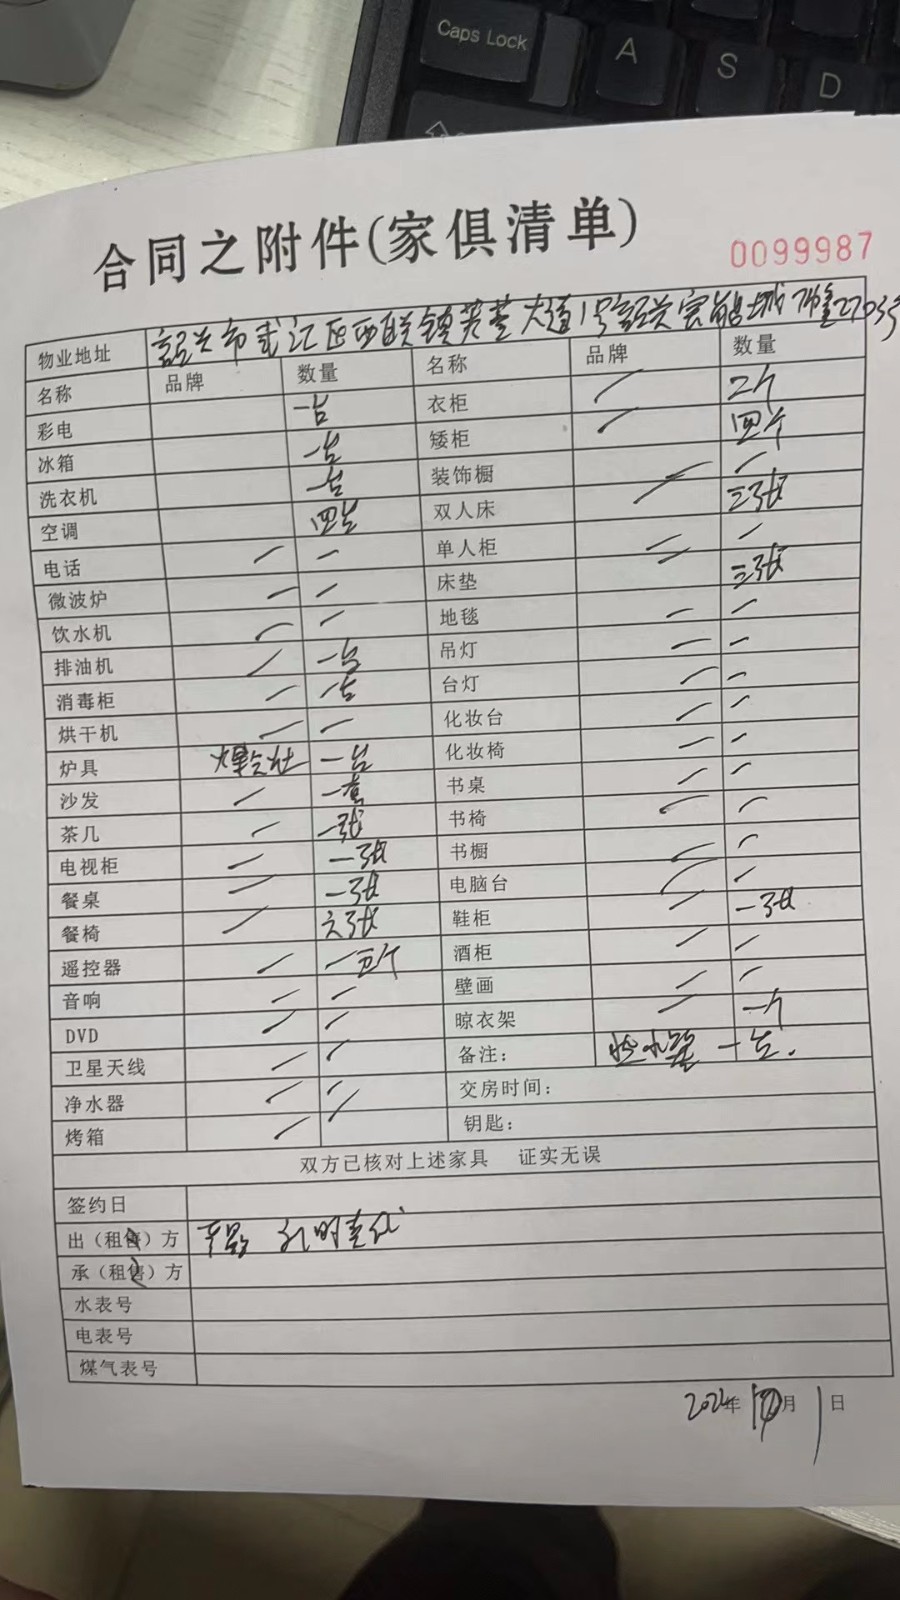 Caps Lock
A
S
D
合同之附件(家俱清单)
0099987
物业地址 韶关市武江区西联镇芙蓉大道1号韶关 城 2703
名称 品牌 数量 名称 品牌 数量
彩电 一台 衣柜 / 二个
冰箱 一台 矮柜 / 四个
洗衣机 一台 装饰橱 / /
空调 四台 双人床 / 三张
电话 / / 单人柜 / /
微波炉 / / 床垫 / 三张
饮水机 / / 地毯 / /
排油机 / 一台 吊灯 / /
消毒柜 / 一台 台灯 / /
烘干机 / / 化妆台 / /
炉具 一台 化妆椅 / /
沙发 / 一套 书桌 / /
茶几 / 一张 书椅 / /
电视柜 / 一张 书橱 / /
餐桌 / 一张 电脑台 / /
餐椅 / 六张 鞋柜 / 一张
遥控器 / 酒柜 / /
音响 / / 壁画 / /
DVD / / 晾衣架 / 一个
卫星天线 / / 备注: 热水器 一台.
净水器 / / 交房时间:
烤箱 / / 钥匙:
双方已核对上述家具 证实无误
签约日
出(租售)方
承(租售)方
水表号
电表号
煤气表号
年 月 1日